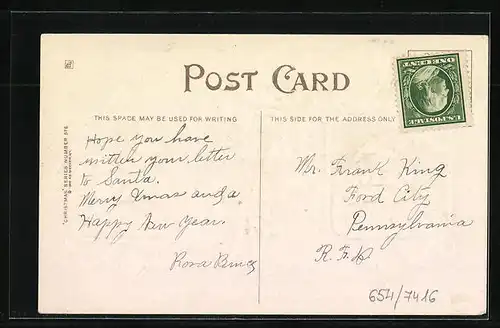 POST CARD
THIS SPACE MAY BE USED FOR WRITING
THIS SIDE FOR THE ADDRESS ONLY
ONE CENT
U.S. POSTAGE
Hope you have
written your letter
to Santa.
Merry Xmas and a
Happy New Year.
Rosa
Mr. Frank King
Ford City
Pennsylvania
R.F.D
"CHRISTMAS" SERIES NUMBER
654/7416